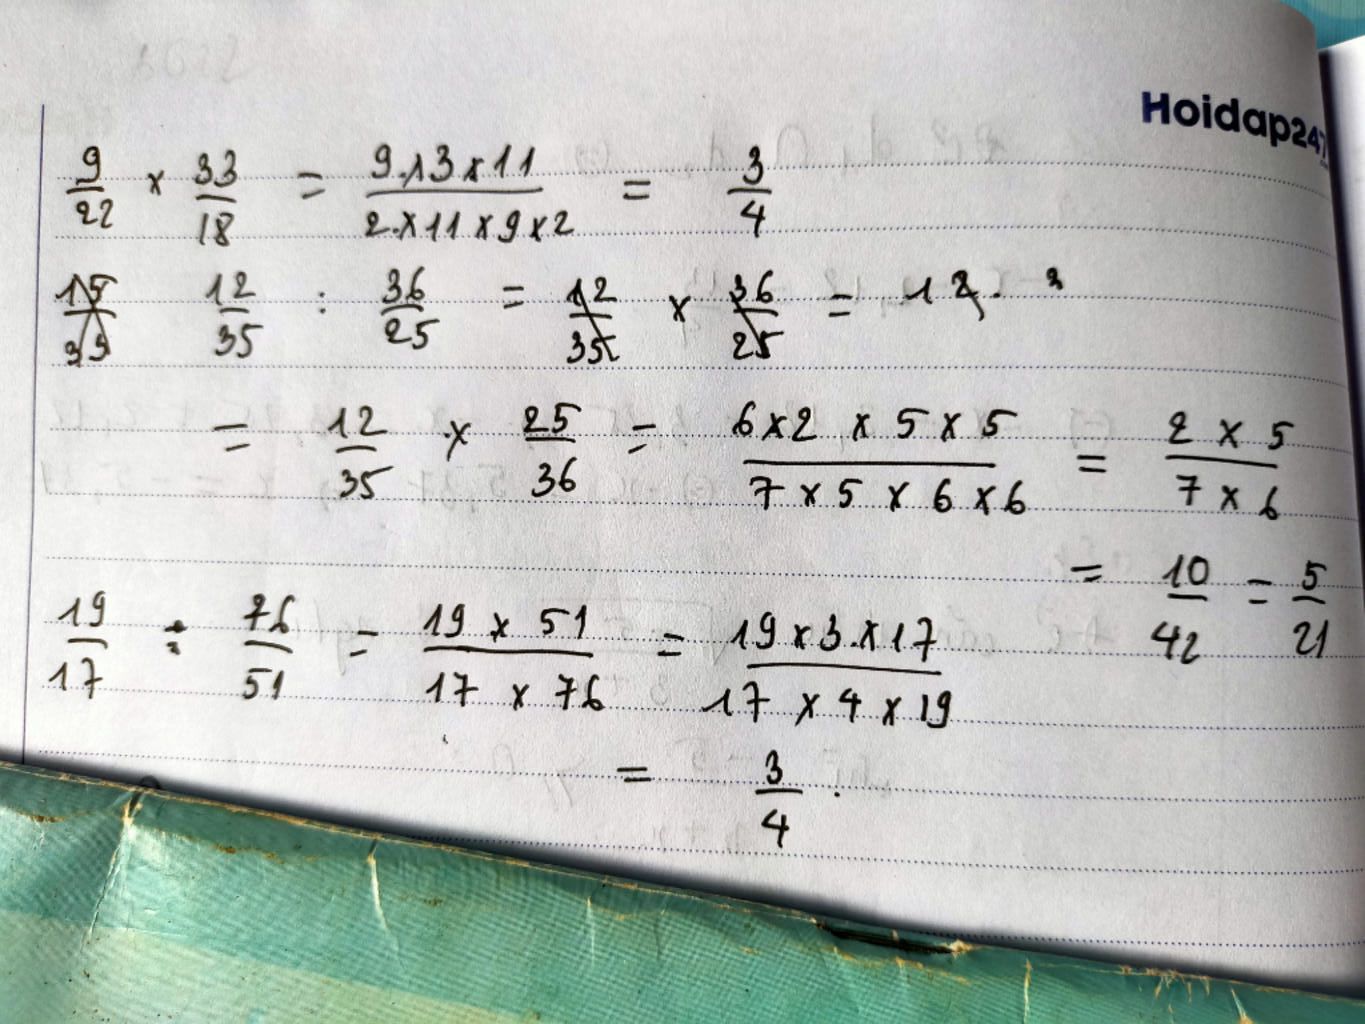 Hoidap247
9/22 x 33/18 = 9 x 3 x 11 / 2 x 11 x 9 x 2 = 3/4
15/33 12/35 : 36/25 = 12/35 x 36/25 = 12.
= 12/35 x 25/36 = 6 x 2 x 5 x 5 / 7 x 5 x 6 x 6 = 2 x 5 / 7 x 6
= 10/42 = 5/21
19/17 : 76/51 = 19 x 51 / 17 x 76 = 19 x 3 x 17 / 17 x 4 x 19
= 3/4.